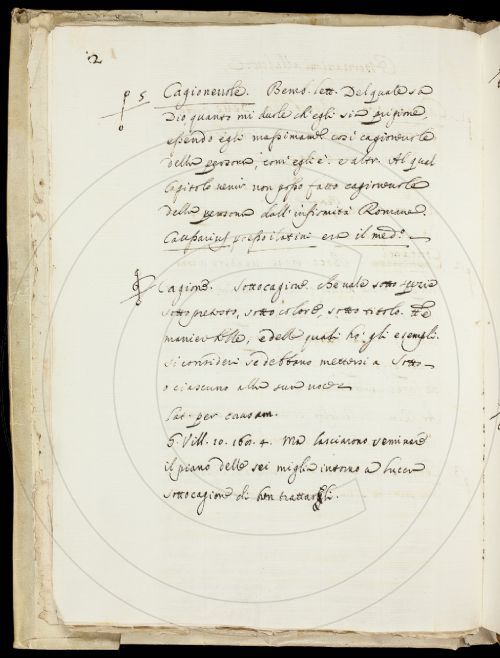 2
5 Cagioneuole. Bemb. lett. Del quale sa
Dio quanto mi duole ch'egli sia prigione,
essendo egli massimamē così cagioneuole
della persona, com'egli è. e altr. Al qual
Capitolo venir non posso fatto cagioneuole
della persona dall'infirmità Romana.
Caussarius presso i latini era il medº
Cagione. Sotto cagione. che uale sotto
sotto pretesto, sotto colore, sotto titolo.
maniere, e delle quali ho gli esempli.
si consideri se debbano mettersi a Sotto
o ciascuno alla sua uoce
Lat. per causam.
G. Vill. 10. 160. 4. Ma lasciarono seminare
il piano delle sei miglia intorno a Lucca
sotto cagione di ben trattargli.